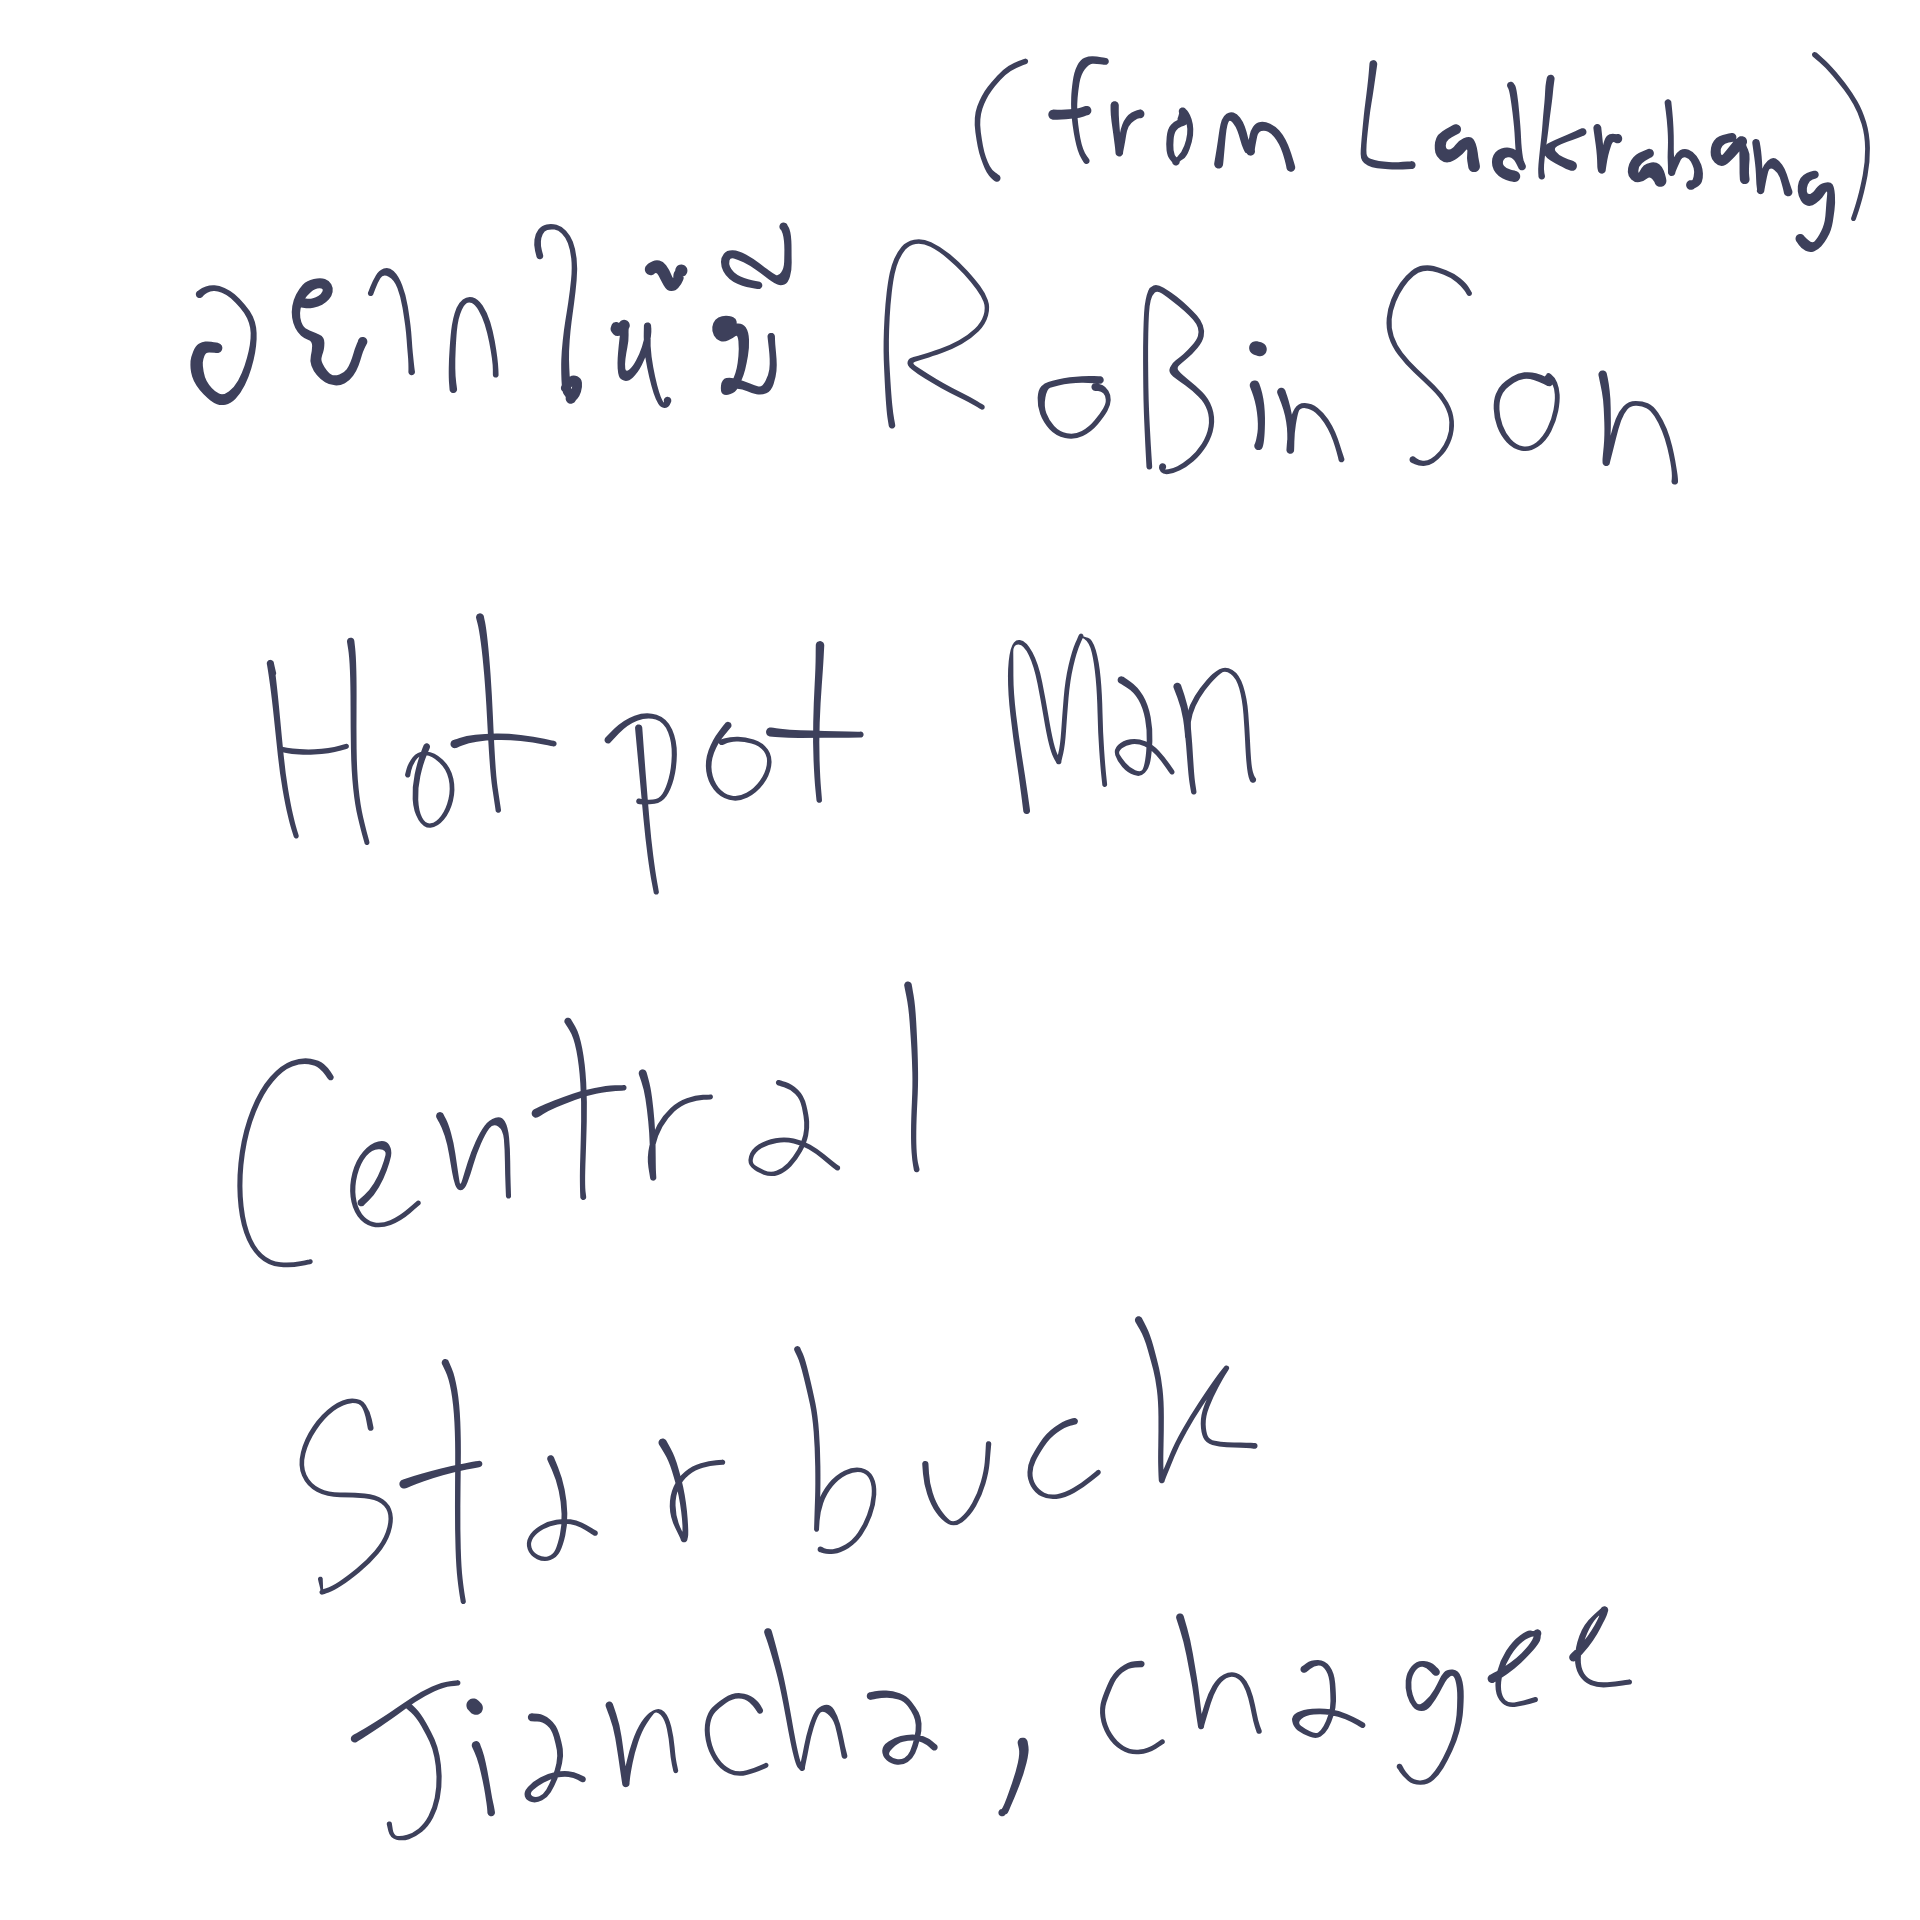 (from Ladkrabang)
อยากให้มี RoBinSon
Hotpot Man
Central
Starbuck
Jiancha, chagee